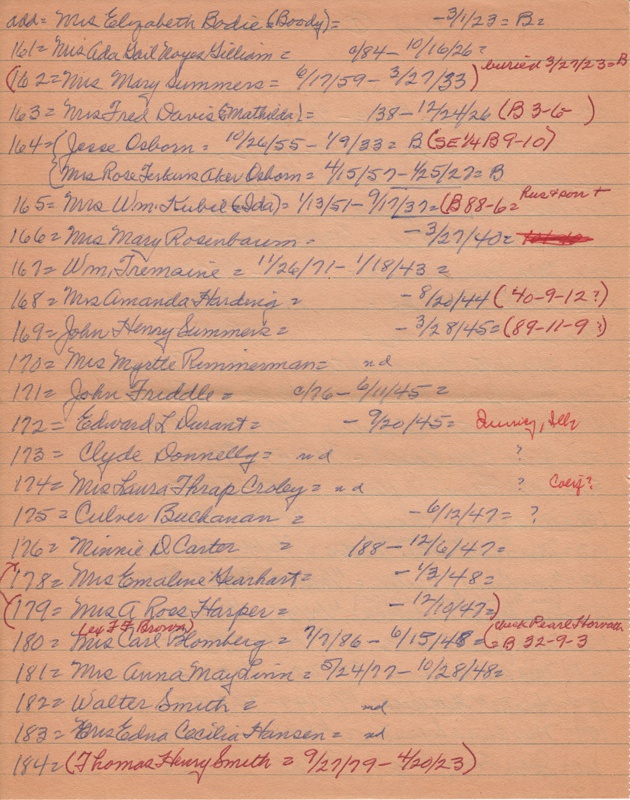 add = Mrs Elizabeth Bodie (Boody) = - 3/1/23 = B =
161 = Mrs Ada Gail Noyes Gilliam = c/84 - 10/16/26 =
(162 = Mrs Mary Summers = 6/17/59 - 3/27/33) buried 3/27/23 = B
163 = Mrs Fred Davis (Mathilda) = 138 - 12/24/26 (B 3-6- )
164 = {Jesse Osborn = 10/26/55 - 1/9/33 = B (SE 1/4 B 9-10)
{Mrs Rose Perkins Aker Osborn = 4/15/57 - 4/25/27 = B
165 = Mrs Wm. Kubel (Ida) = 1/13/51 - 9/17/37 = (B 88-6 = Rus + son +
166 = Mrs Mary Rosenbaum = - 3/27/40 =
167 = Wm. Tremaine = 11/26/71 - 1/18/43 =
168 = Mrs Amanda Harding = - 8/20/44 (40-9-12?)
169 = John Henry Summers = - 3/28/45 = (89-11-9?)
170 = Mrs Myrtle Rimmerman = nd
171 = John Friddle = c/76 - 6/11/45 =
172 = Edward L Durant = - 9/20/45 =
173 = Clyde Donnelly = nd ?
174 = Mrs Laura Thrap Croley = nd ?
175 = Culver Buchanan = - 6/12/47 = ?
176 = Minnie D. Carter = 188 - 12/6/47 =
178 = Mrs Emaline Gearhart = - 1/3/48 =
(179 = Mrs A Ross Harper = - 12/19/47 =)
(ex F F Brown) check Pearl Horvath
180 = Mrs Carl Blomberg = 7/7/86 - 6/15/48 = (= B 32-9-3
181 = Mrs Anna May Linn = 5/24/77 - 10/28/48 =
182 = Walter Smith = nd
183 = Mrs Edna Cecilia Hansen = nd
184 = (Thomas Henry Smith = 9/27/79 - 4/20/23)